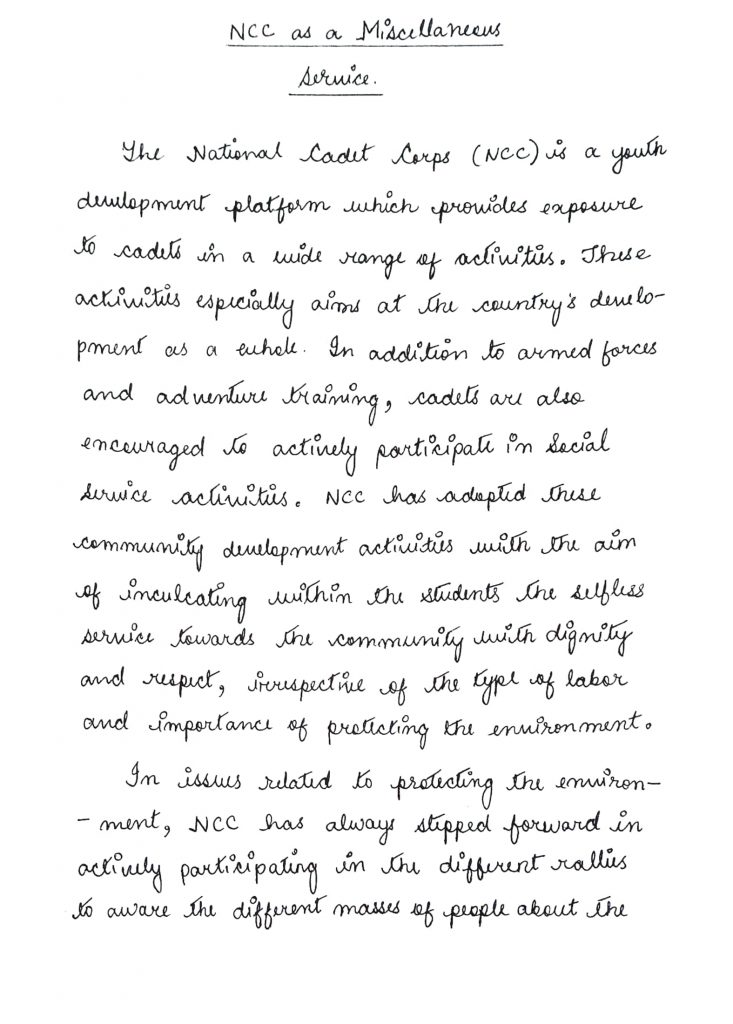 NCC as a Miscellaneous
Service.
The National Cadet Corps (NCC) is a youth
development platform which provides exposure
to cadets in a wide range of activities. These
activities especially aims at the country's develo-
pment as a whole. In addition to armed forces
and adventure training, cadets are also
encouraged to actively participate in Social
Service activities. NCC has adopted these
community development activities with the aim
of inculcating within the students the selfless
service towards the community with dignity
and respect, irrespective of the type of labor
and importance of protecting the environment.
In issues related to protecting the environ-
- ment, NCC has always stepped forward in
actively participating in the different rallies
to aware the different masses of people about the